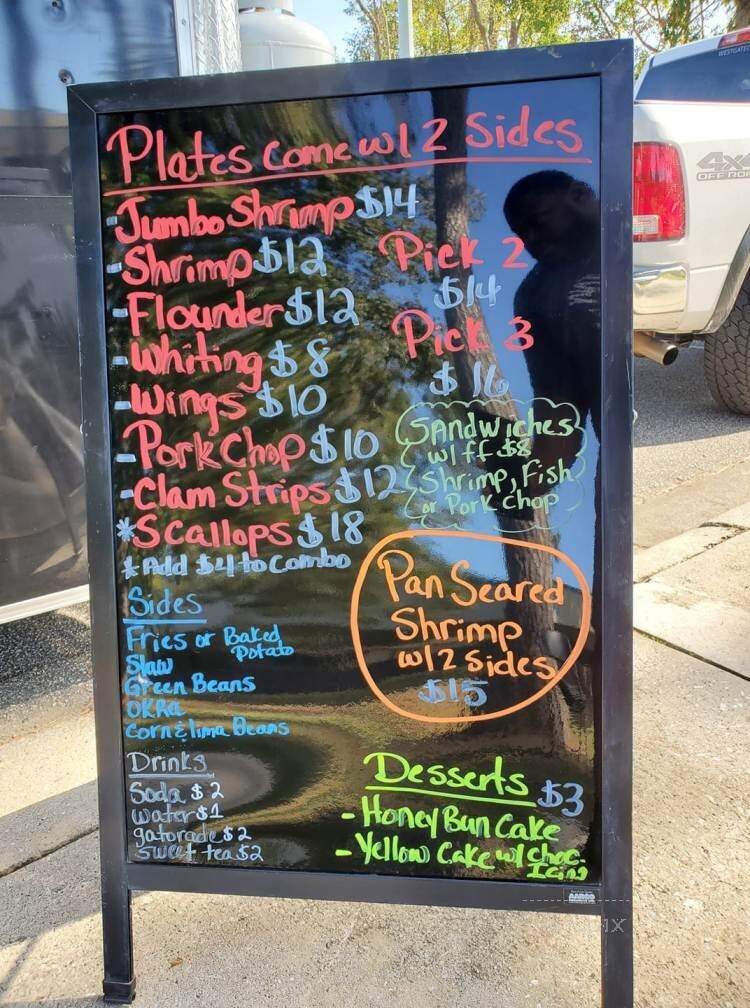 Plates Come w/ 2 Sides
-Jumbo Shrimp $14
-Shrimp $12
-Flounder $12
-Whiting $8
-Wings $10
-Pork Chop $10
-Clam Strips $12
*Scallops $18
*Add $4 to Combo
Pick 2
$14
Pick 3
$16
SANdwiches
w/ff $8
Shrimp, Fish
or Pork Chop
Pan Seared
Shrimp
w/2 Sides
$15
Sides
Fries or Baked
Potato
Slaw
Green Beans
OKRa
Corn & lima Beans
Drinks
Soda $2
water $1
gatorade $2
Sweet tea $2
Desserts $3
- Honey Bun Cake
- Yellow Cake w/ Choc.
Icing
4x4
OFF ROAD